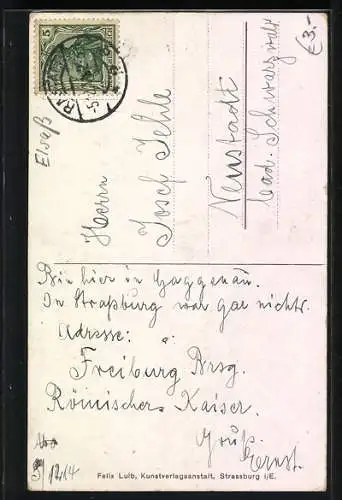 5
€3.-
Elsaß
Herrn
Josef Jehle
Neustadt
bad. Schwarzwald
Bin hier in Gaggenau.
In Straßburg war gar nichts.
Adresse:
Freiburg Brsg.
Römischer Kaiser.
Gruß
Ernst.
1214
Felix Luib, Kunstverlagsanstalt, Strassburg i/E.